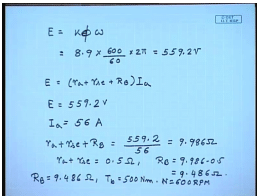 E = kφω
= 8.9 × 600/60 × 2π = 559.2V
E = (ra + rse + RB) Ia
E = 559.2 V
Ia = 56 A
ra + rse + RB = 559.2/56 = 9.986Ω
ra + rse = 0.5Ω, RB = 9.986-0.5
= 9.486Ω.
RB = 9.486 Ω, Tb = 500 Nm. N = 600 RPM